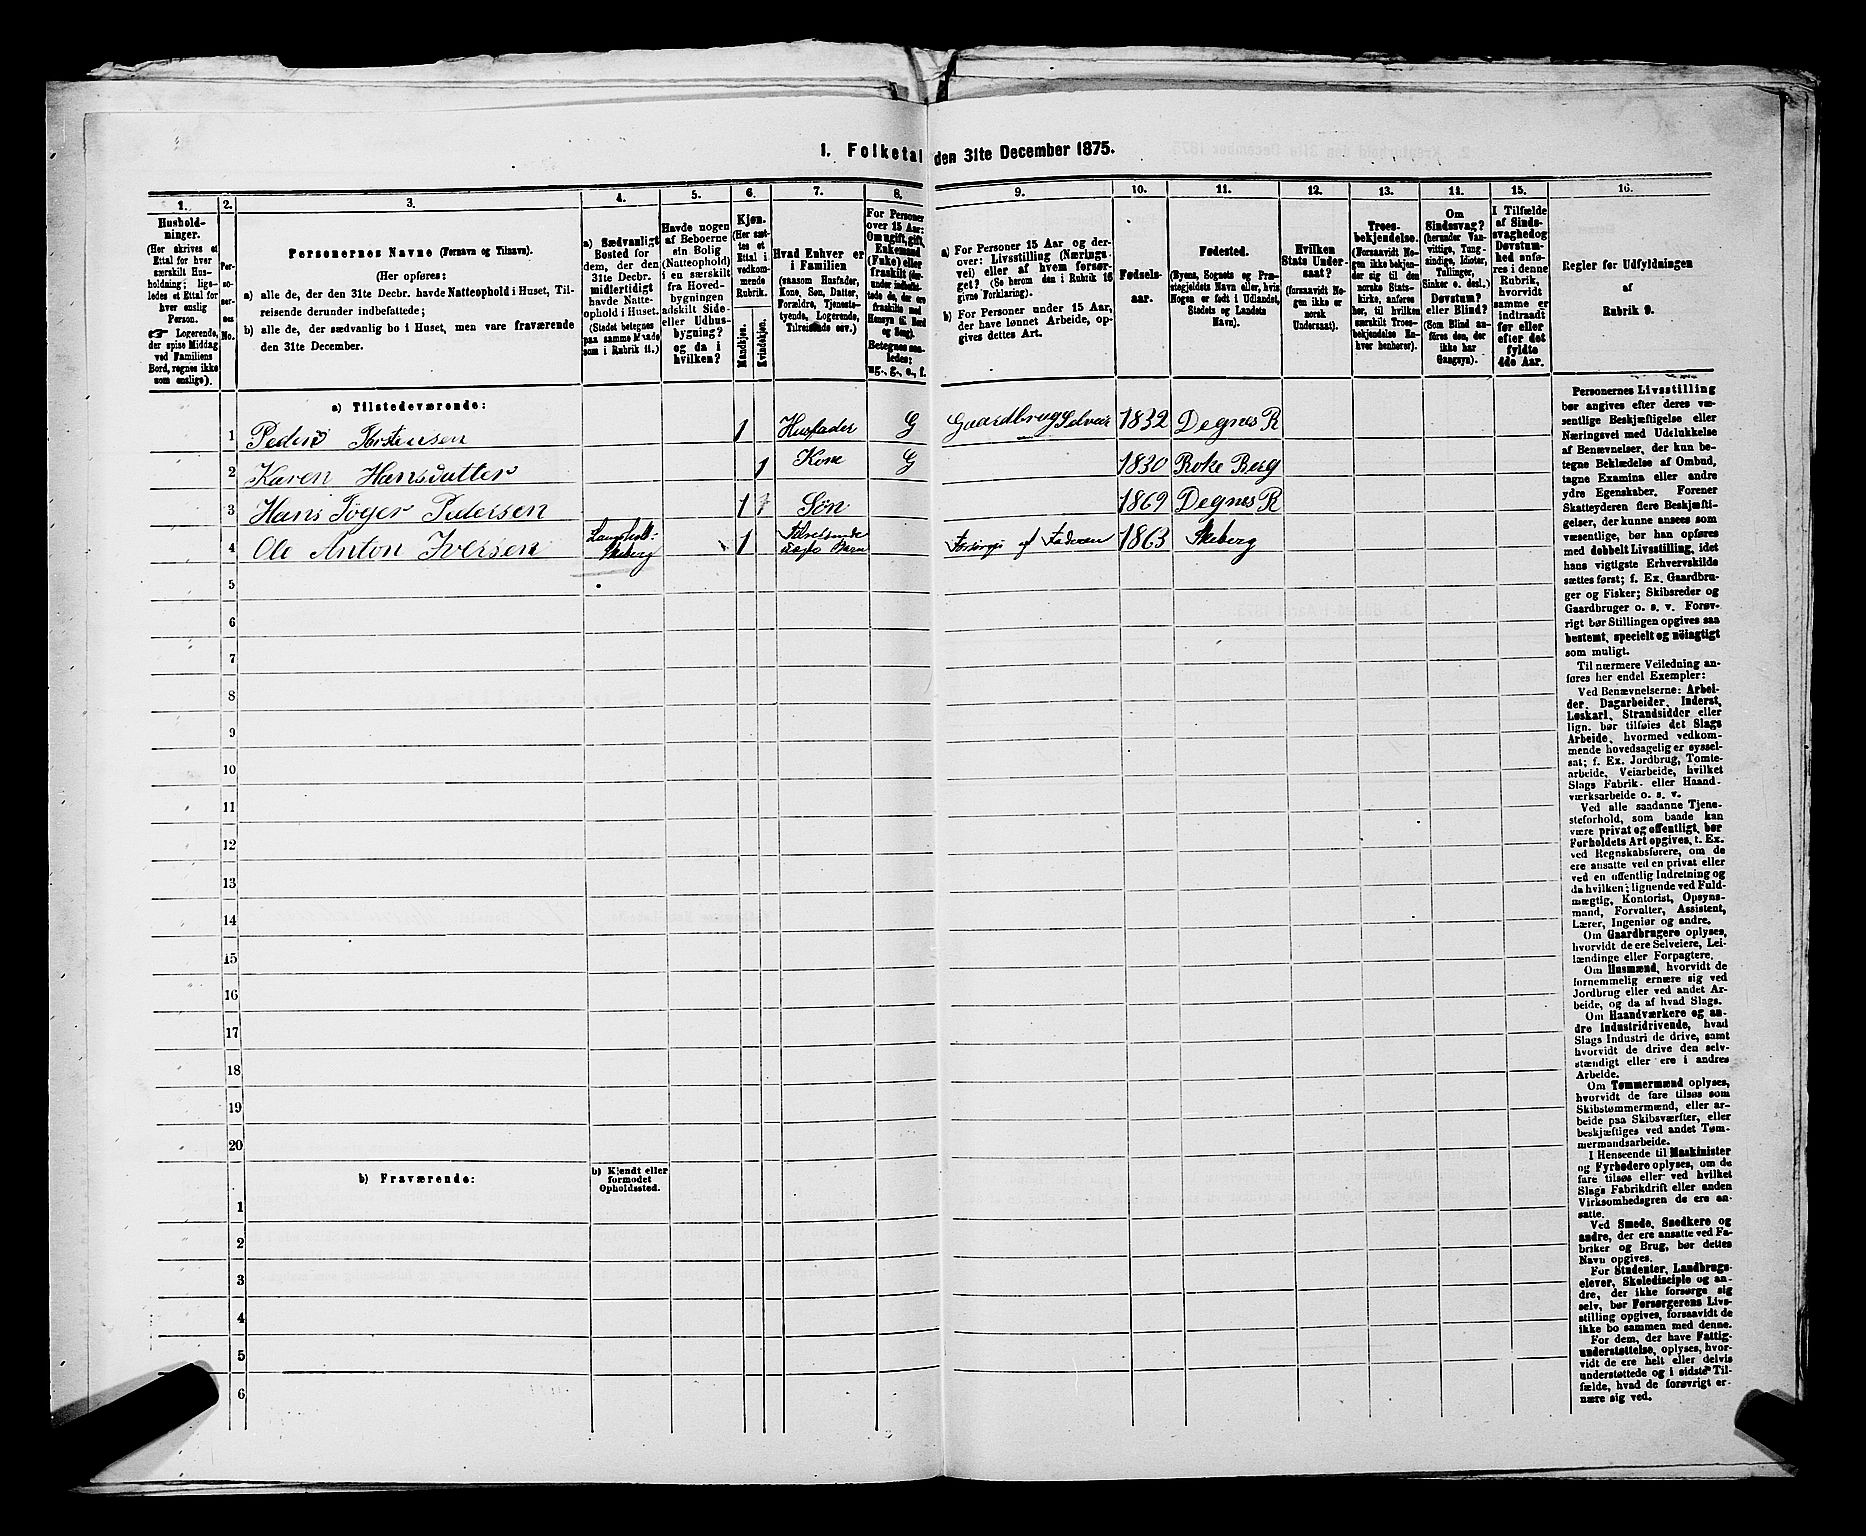 1. Folketal den 31te December 1875.
1. 2. 3. 4. 5. 6. 7. 8. 9. 10. 11. 12. 13. 14. 15. 16.
Husholdninger.
(Her skrives et
Ettal for hver
særskilt Husholdning;
ligeledes et Ettal for
hver enslig
Person.
☞ Logerende,
der spise Middag
ved Familiens
Bord, regnes ikke
som enslige).
Personernes No.
Personernes Navne (Fornavn og Tilnavn).
(Her opføres:
a) alle de, der den 31te Decbr. havde Natteophold i Huset, Tilreisende derunder indbefattede;
b) alle de, der sædvanlig bo i Huset, men vare fraværende
den 31te December.
a) Sædvanligt
Bosted for
dem, der den
31te Decbr.
midlertidigt
havde Natteophold i Huset.
(Stedet betegnes
paa samme Maade
som i Rubrik 11.)
Havde nogen
af Beboerne
sin Bolig
(Natteophold)
i en særskilt
fra Hovedbygningen
adskilt Side-
eller Udhusbygning?
og da i
hvilken?
Kjøn.
(Her sættes et
Ettal i
vedkommende
Rubrik.
Mandkjøn.
Kvindekjøn.
Hvad Enhver er
i Familien
(saasom Husfader,
Kone, Søn, Datter,
Forældre, Tjenestetyende, Logerende,
Tilreisende osv.)
For Personer
over 15 Aar:
Om ugift, gift,
Enkemand
(Enke) eller
fraskilt
Betegnes saaledes:
ug., g., e., f.
a) For Personer 15 Aar og derover: Livsstilling (Næringsvei) eller af hvem forsørget? (Se herom den i Rubrik 16
givne Forklaring).
b) For Personer under 15 Aar,
der have lønnet Arbeide, opgives dettes Art.
Fødselsaar.
Fødested.
(Byens, Sognets og Præstegjeldets Navn eller, hvis
Nogen er født i Udlandet,
Stedets og Landets
Navn).
Hvilken
Stats Undersaat?
(forsaavidt Nogen ikke er
norsk
Undersaat).
Troesbekjendelse.
(Forsaavidt Nogen ikke bekjender sig til den
norske Statskirke, anføres
her, til hvilken
særskilt Troesbekjendelse Enhver henhører).
Om
Sindssvag?
(herunder Vanvittige, Tungsindige, Idioter,
Tullinger,
Sinker o. desl.)
Døvstum?
eller Blind?
(Som Blind anføres den, der
ikke har
Gangsyn).
I Tilfælde
af Sindssvaghed og
Døvstumhed anføres i denne
Rubrik,
hvorvidt
samme er
indtraadt
før eller
efter det
fyldte
4de Aar.
Regler for Udfyldningen
af
Rubrik 9.
a) Tilstedeværende:
1 Peder Torstensen 1 Husfader G Gaardbrug Selveier 1832 Degnes R
2 Karen Hansdatter 1 Kone G 1830 Roke Berg
3 Hans Peder Pedersen 1 Søn 1869 Degnes R
4 Ole Anton Iversen 1 Tilreisende Barn Forsørges af Faderen 1863 Skeberg
5
6
7
8
9
10
11
12
13
14
15
16
17
18
19
20
b) Fraværende:
b) Kjendt eller
formodet
Opholdssted.
1
2
3
4
5
6
Personernes Livsstilling
bør angives efter deres væsentlige Beskjæftigelse eller
Næringsvei med Udelukkelse
af Benævnelser, der kun betegne Beklædelse af Ombud,
tagne Examina eller andre
ydre Egenskaber. Forener
Skatteyderen flere Beskjæftigelser, der kunne ansees som
væsentlige, bør han opføres
med dobbelt Livsstilling, idet
hans vigtigste Erhvervskilde
sættes først; f. Ex. Gaardbruger og Fisker; Skibsreder og
Gaardbruger o. s. v. Forøvrigt bør Stillingen opgives saa
bestemt, specielt og nöiagtigt
som muligt.
Til nærmere Veiledning anføres her endel Exempler:
Ved Benævnelserne: Arbeider, Dagarbeider, Inderst,
Løskarl, Strandsidder eller
lign. bør tilføies det Slags
Arbeide, hvormed vedkommende hovedsagelig er sysselsat; f. Ex. Jordbrug, Tomtearbeide, Veiarbeide, hvilket
Slags Fabrik- eller Haandværksarbeide o. s. v.
Ved alle saadanne Tjenesteforhold, som baade kan
være privat og offentligt, bør
Forholdets Art opgives, t. Ex.
ved Regnskabsførere, om de
ere ansatte ved en privat eller
ved en offentlig Indretning og
da hvilken; lignende ved Fuldmægtig, Kontorist, Opsynsmand, Forvalter, Assistent,
Lærer, Ingeniør og andre.
Om Gaardbrugere oplyses,
hvorvidt de ere Selveiere, Leilændinge eller Forpagtere.
Om Husmænd, hvorvidt de
fornemmelig ernære sig ved
Jordbrug eller ved andet Arbeide, og da af hvad Slags.
Om Haandværkere og andre Industridrivende, hvad
Slags Industri de drive, samt
hvorvidt de drive den selvstændigt eller ere i andres
Arbeide.
Om Tømmermænd oplyses,
hvorvidt de fare tilsøs som
Skibstømmermænd, eller arbeide paa Skibsværfter, eller
beskjæftiges ved andet Tømmermandsarbeide.
I Henseende til Maskinister
og Fyrbødere oplyses, om de
fare tilsøs eller ved hvilket
Slags Fabrikdrift eller anden
Virksomhedsgren de ere ansatte.
Ved Smede, Snedkere og
andre, der ere ansatte ved Fabriker og Brug, bør dettes
Navn opgives.
For Studenter, Landbrugselever, Skoledisciple og andre, der ikke forsørge sig
selv, bør Forsørgerens Livsstilling opgives, forsaavidt de
ikke bo sammen med denne.
For dem, der have Fattigunderstøttelse, oplyses, hvorvidt de ere helt eller delvis
understøttede og i sidste Tilfælde, hvad de forøvrigt ernære sig ved.